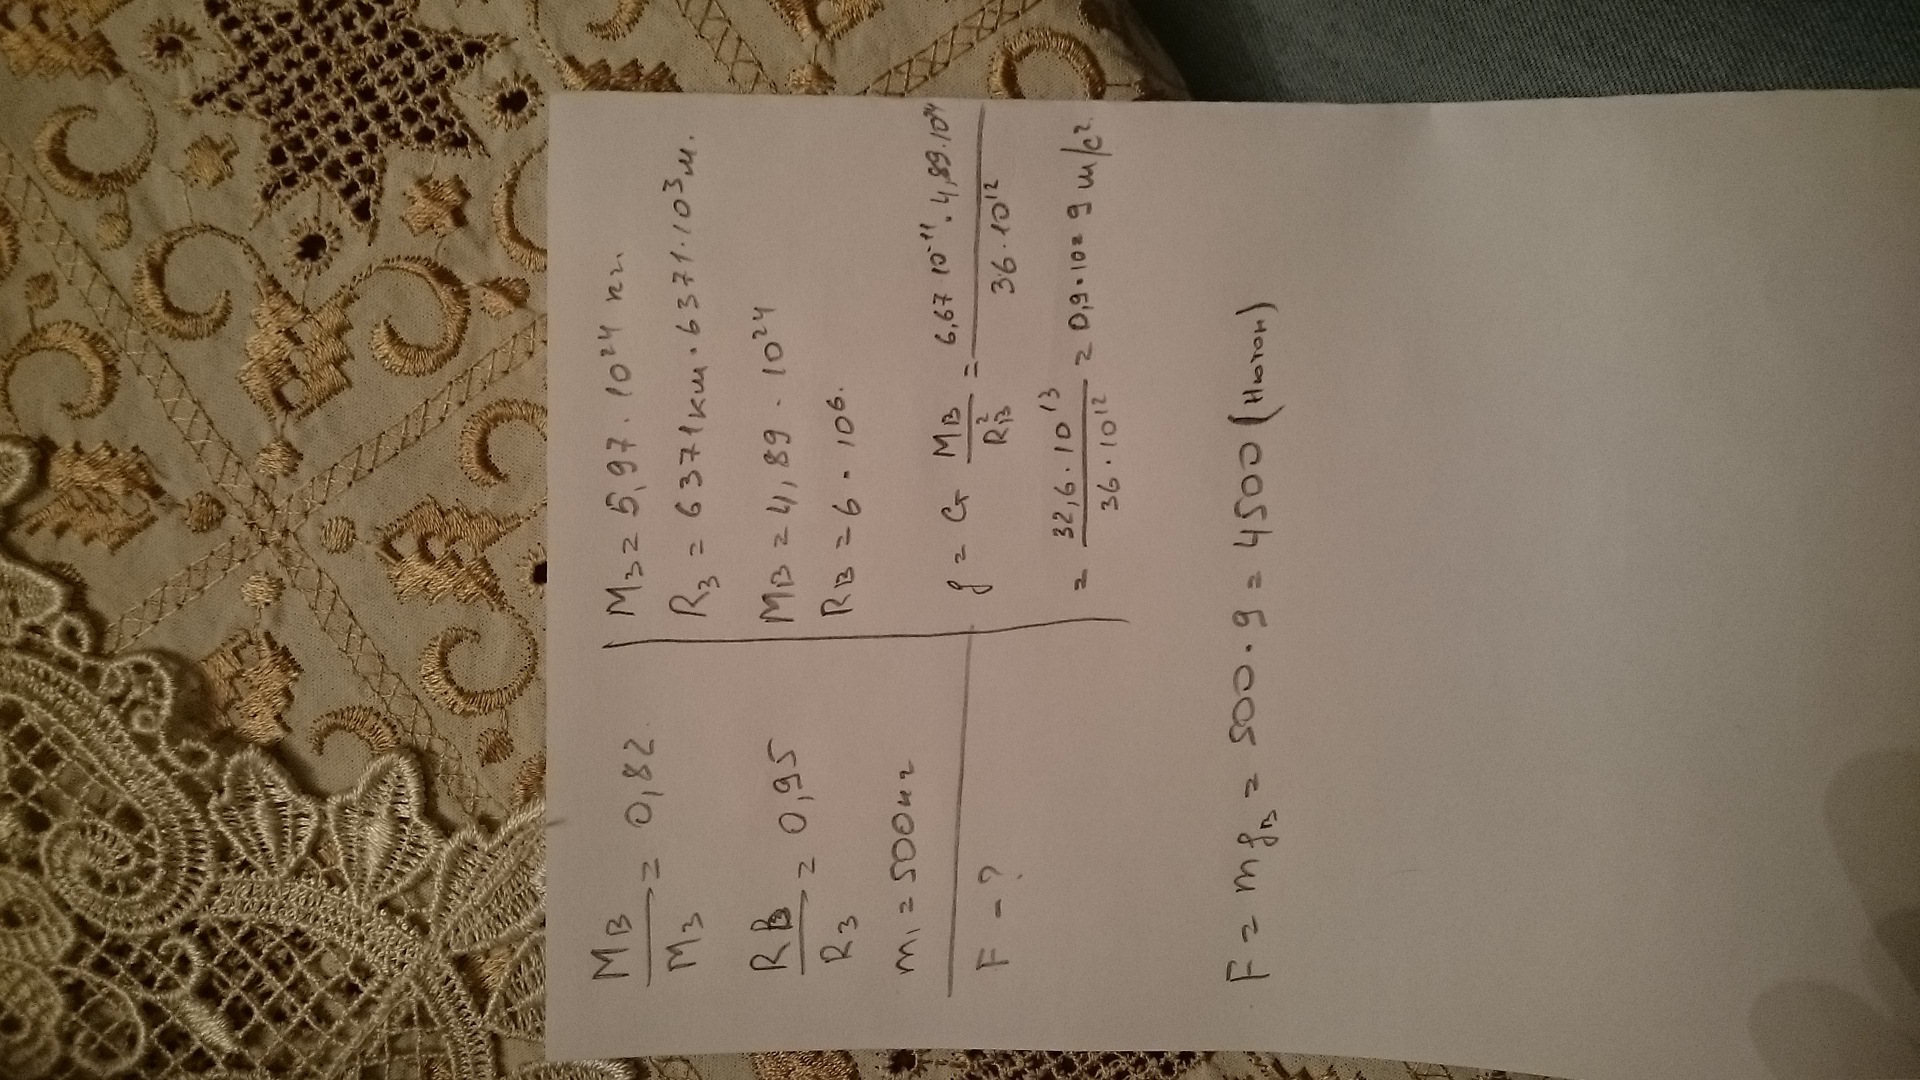 Mв/Mз = 0,82
Rв/Rз = 0,95
m₁ = 500кг
F - ?
Mз = 5,97 · 10²⁴ кг
Rз = 6371км · 6371 · 10³ м.
Mв = 4,89 · 10²⁴
Rв = 6 · 10⁶.
g = G Mв/Rв² = 6,67 · 10⁻¹¹ · 4,89 · 10²⁴/36 · 10¹² =
= 32,6 · 10¹³/36 · 10¹² = 0,9 · 10 = 9 м/с²
F = mgв = 500 · 9 = 4500 (Ньютон)